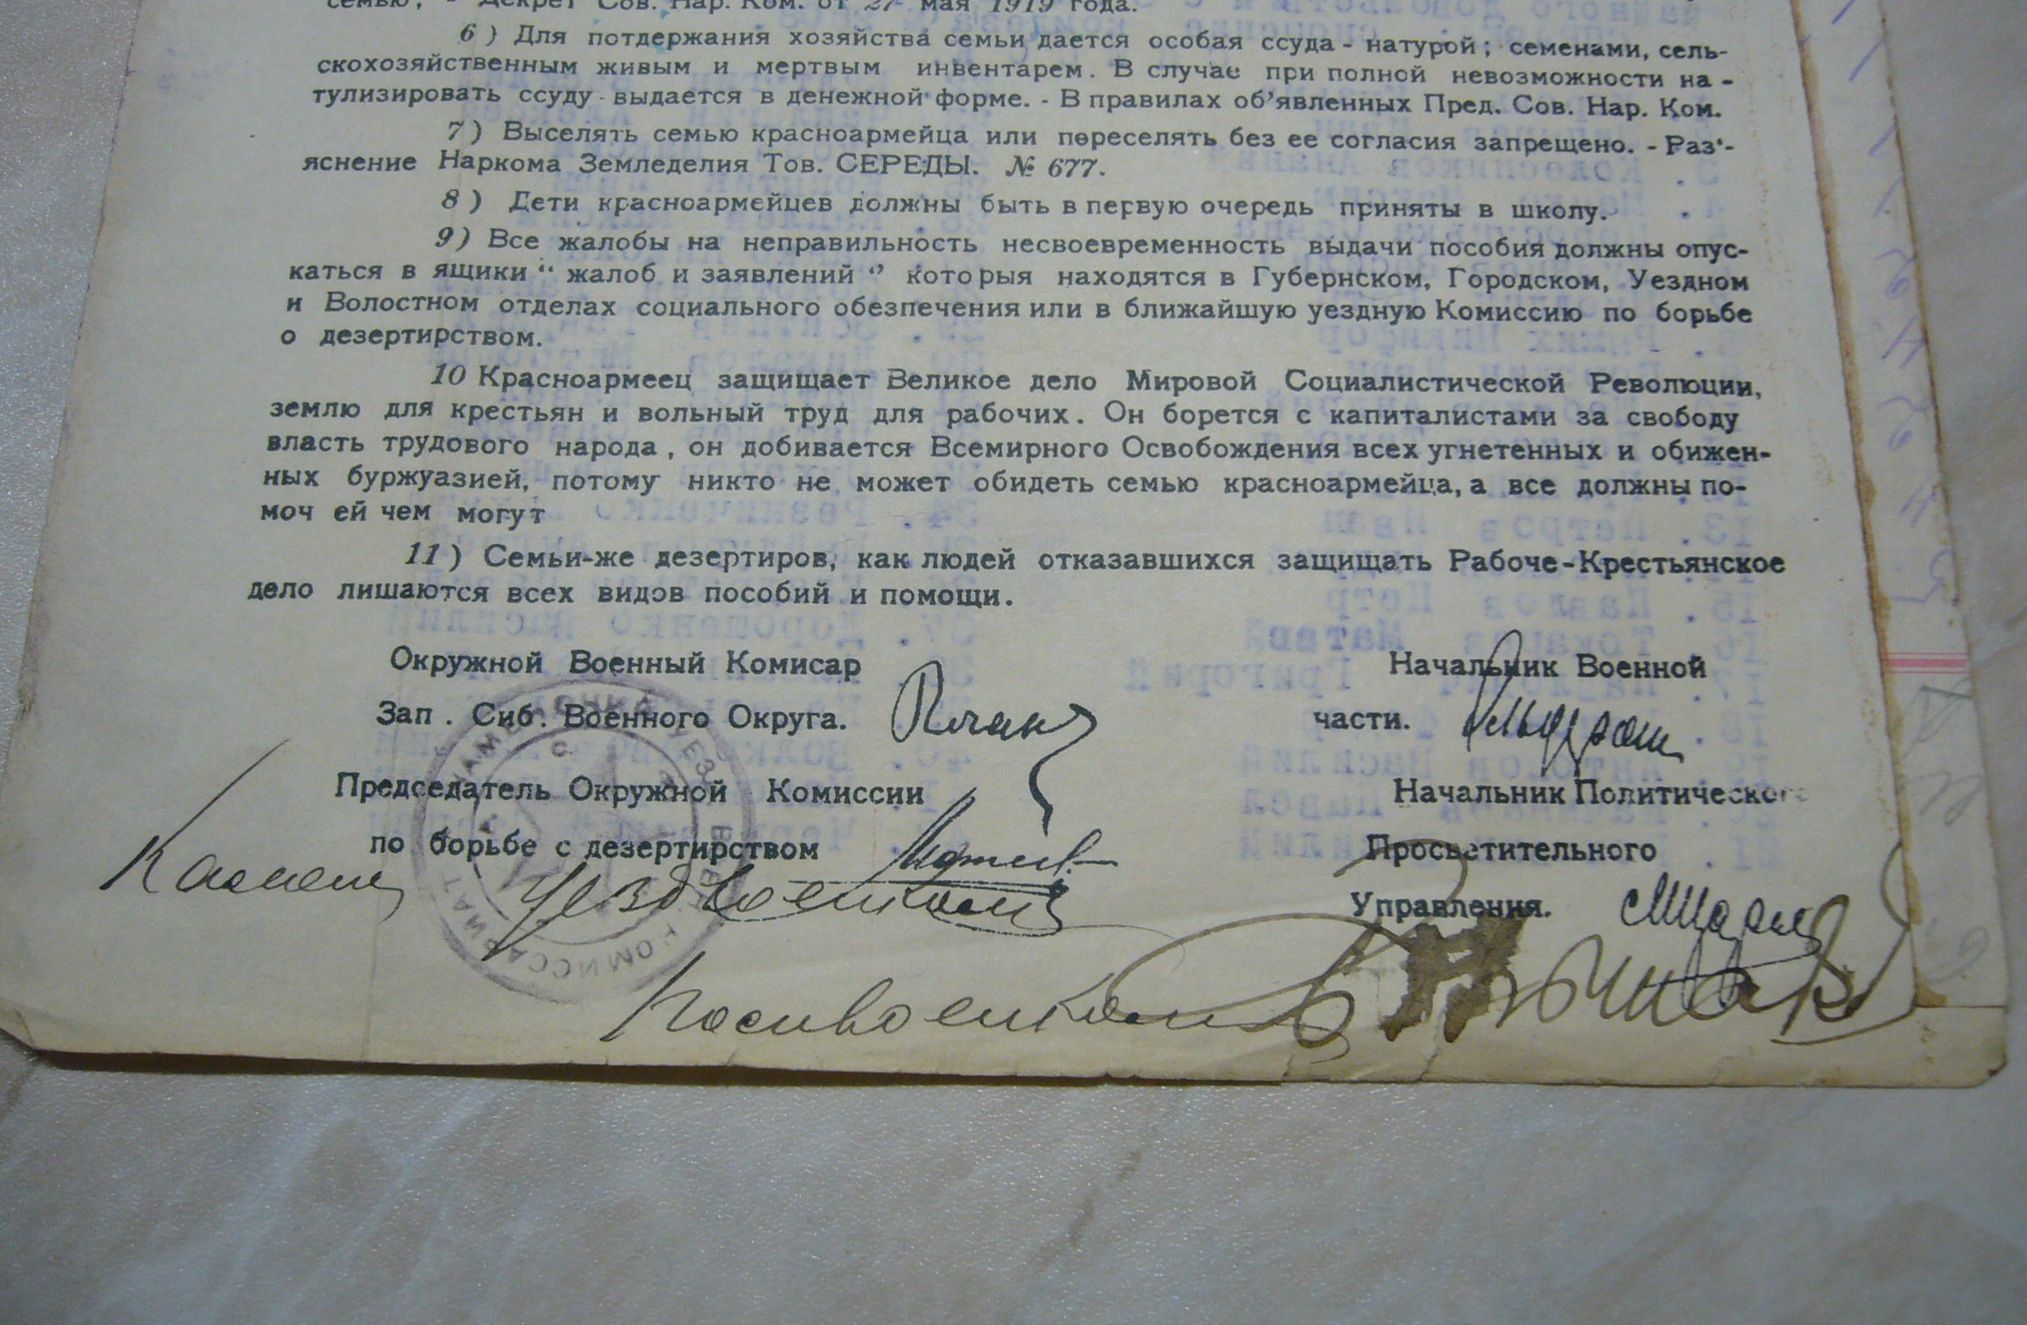 семью, - Декрет Сов. Нар. Ком. от 27 мая 1919 года.
6) Для потдержания хозяйства семьи дается особая ссуда - натурой; семенами, сель-
скохозяйственным живым и мертвым инвентарем. В случае при полной невозможности на-
тулизировать ссуду - выдается в денежной форме. - В правилах об’явленных Пред. Сов. Нар. Ком.
7) Выселять семью красноармейца или переселять без ее согласия запрещено. - Раз‘-
яснение Наркома Земледелия Тов. СЕРЕДЫ. № 677.
8) Дети красноармейцев должны быть в первую очередь приняты в школу.
9) Все жалобы на неправильность несвоевременность выдачи пособия должны опус-
каться в ящики “ жалоб и заявлений “ которыя находятся в Губернском, Городском, Уездном
и Волостном отделах социального обезпечения или в ближайшую уездную Комиссию по борьбе
о дезертирством.
10 Красноармеец защищает Великое дело Мировой Социалистической Революции,
землю для крестьян и вольный труд для рабочих. Он борется с капиталистами за свободу
власть трудового народа, он добивается Всемирного Освобождения всех угнетенных и обижен-
ных буржуазией, потому никто не может обидеть семью красноармейца, а все должны по-
моч ей чем могут
11) Семьи-же дезертиров, как людей отказавшихся защищать Рабоче-Крестьянское
дело лишаются всех видов пособий и помощи.
Окружной Военный Комисар
Зап. Сиб. Военного Округа.
Председатель Окружной Комиссии
по борьбе с дезертирством
Начальник Военной
части.
Начальник Политическог
Просветительного
Управления.
Уездвоенком